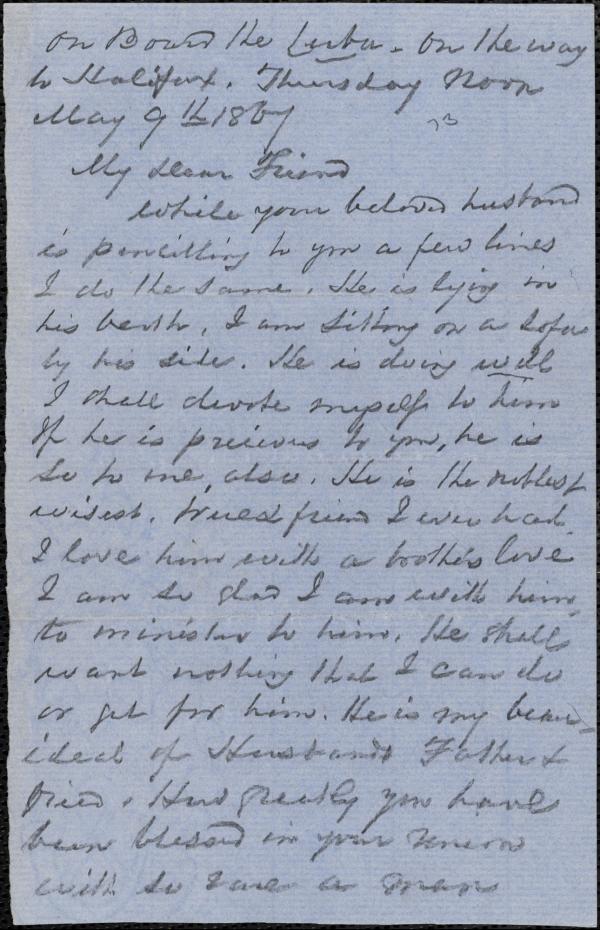 On Board the Cuba - On the way
to Halifax. Thursday Noon
May 9th 1867
23
My dear Friend
While your beloved husband
is pencilling to you a few lines
I do the same. He is lying in
his berth, I am sitting on a sofa
by his side. He is doing well
I shall devote myself to him
If he is precious to you, he is
so to me, also. He is the noblest
wisest, truest friend I ever had.
I love him with a brother's love
I am so glad I am with him,
to minister to him. He shall
want nothing that I can do
or get for him. He is my beau-
ideal of Husband Father &
friend. How greatly you have
been blessed in your union
with so rare a man